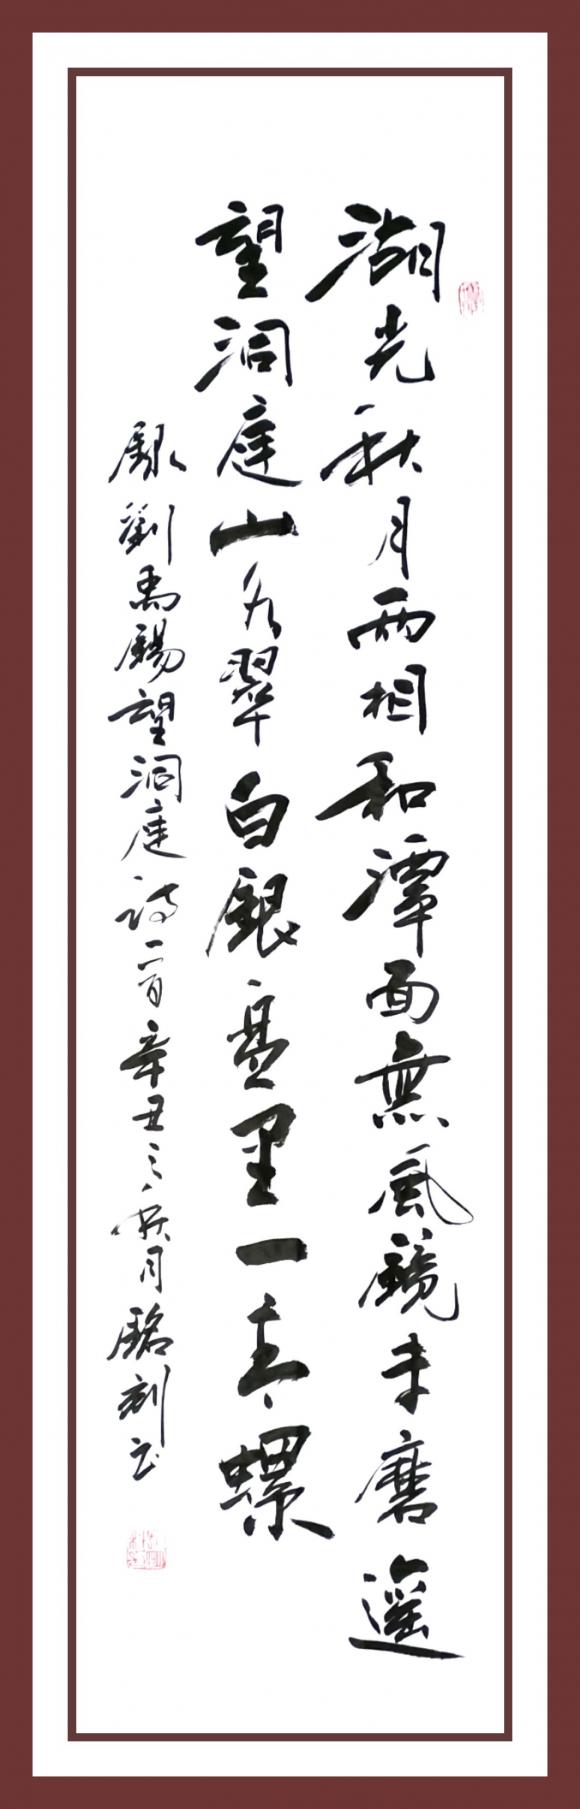 湖光秋月兩相和潭面無風鏡未磨遥
望洞庭山水翠白銀盘里一青螺
録劉禹錫望洞庭詩一首辛丑之秋月銘利书